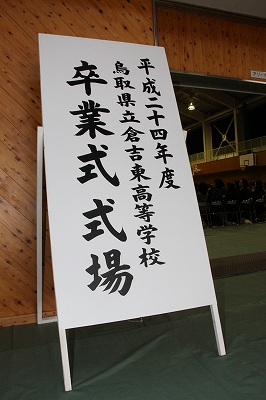 平成二十四年度
鳥取県立倉吉東高等学校
卒業式式場